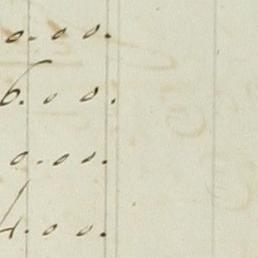 0.0 0.
6.0 0.
0.0 0.
4.0 0.